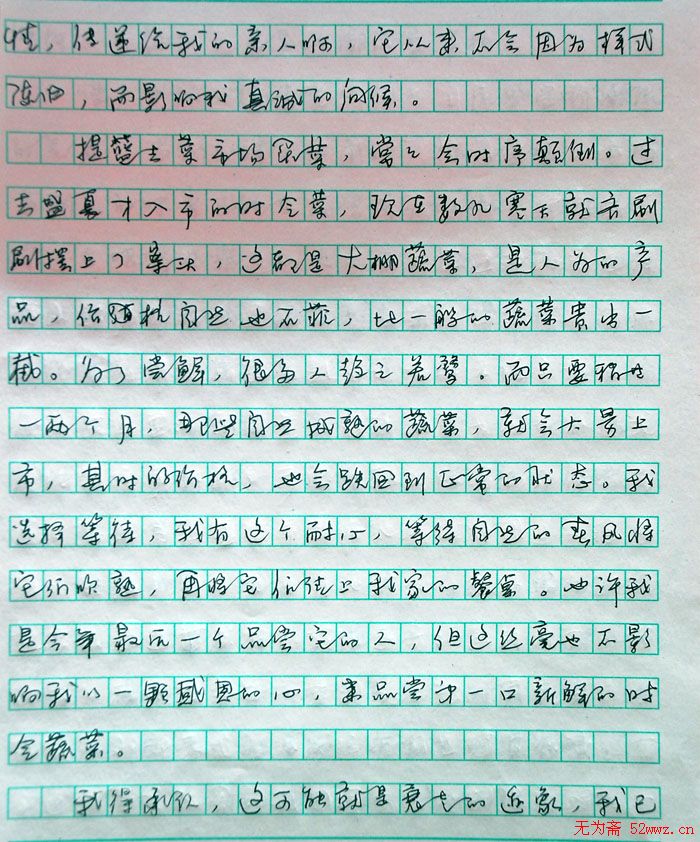 情，传递给我的亲人啊，它从来不会因为样式
陈旧，而影响我真诚的问候。
提篮去菜市场买菜，常常会时序颠倒。过
去盛夏才入市的时令菜，现在数九寒天就齐刷
刷摆上了摊头，这都是大棚蔬菜，是人为的产
品，价格自然也不菲，比一般的蔬菜贵出一
截。为了尝鲜，很多人趋之若鹜。而只要稍等
一两个月，那些自然成熟的蔬菜，就会大量上
市，其时的价格，也会跌回到正常的状态。我
选择等待，我有这个耐心，等待自然的春风将
它们吹熟，再将它们请上我家的餐桌。也许我
是今年最后一个品尝它的人，但这丝毫也不影
响我以一颗感恩的心，来品尝第一口新鲜的时
令蔬菜。
我得承认，这可能就是衰老的迹象，我已
无为斋 52wwz.cn